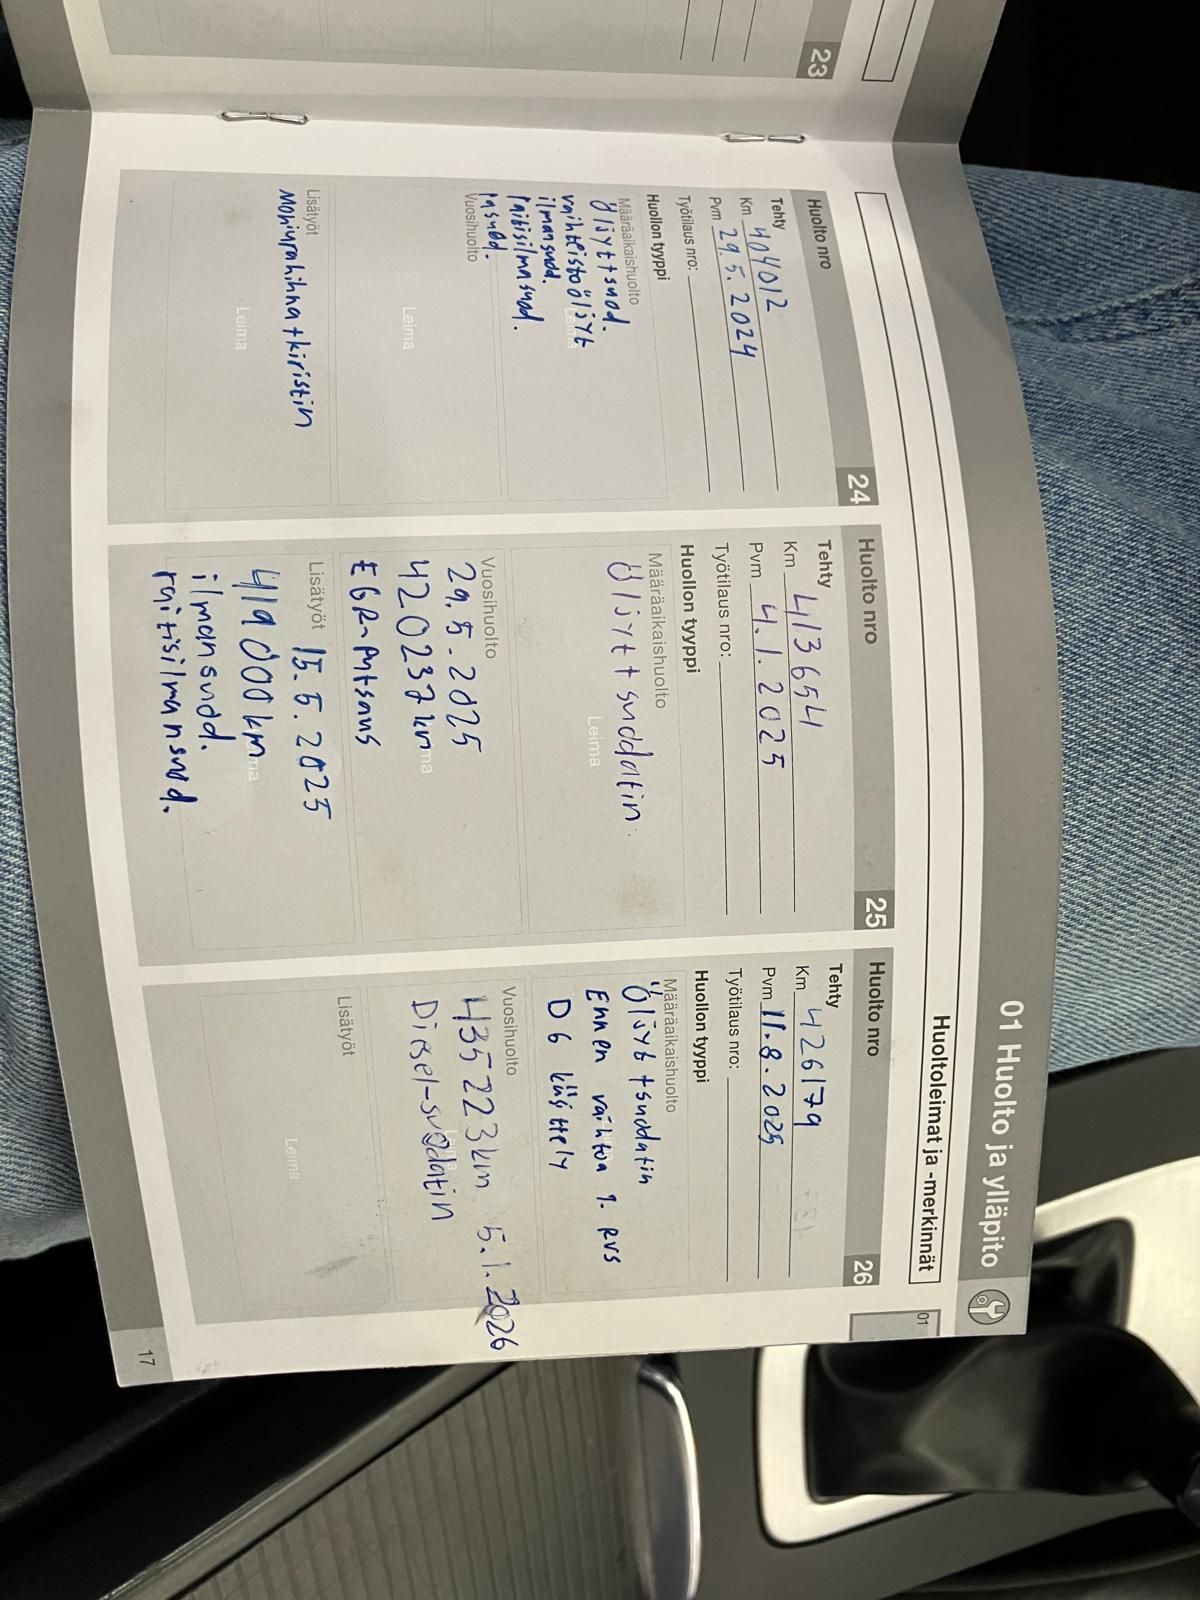 23
01 Huolto ja ylläpito
Huoltoleimat ja -merkinnät
01
Huolto nro 24
Tehty
Km 404012
Pvm 29.5.2024
Työtilaus nro:
Huollon tyyppi
Määräaikaishuolto
Öljyt+suod.
vaihteistoöljyt
ilmansudd.
raitisilmasuod.
Vuosihuolto
Leima
Lisätyöt
Moniurahihna+kiristin
Leima
Huolto nro 25
Tehty
Km 413654
Pvm 4.1.2025
Työtilaus nro:
Huollon tyyppi
Määräaikaishuolto
Öljyt+suddatin
Leima
Vuosihuolto
29.5.2025
420237km
EGR-putsaus
Lisätyöt 15.5.2025
419000km
ilmansudd.
raitisilmansuod.
Huolto nro 26
Tehty
Km 426179
Pvm 11.8.2025
Työtilaus nro:
Huollon tyyppi
Määräaikaishuolto
Öljyt+suodatin
Ennen vaihtoa 1. RVS
D6 käsittely
Vuosihuolto
435223km 5.1.2026
Diesel-suodatin
Lisätyöt
Leima
17